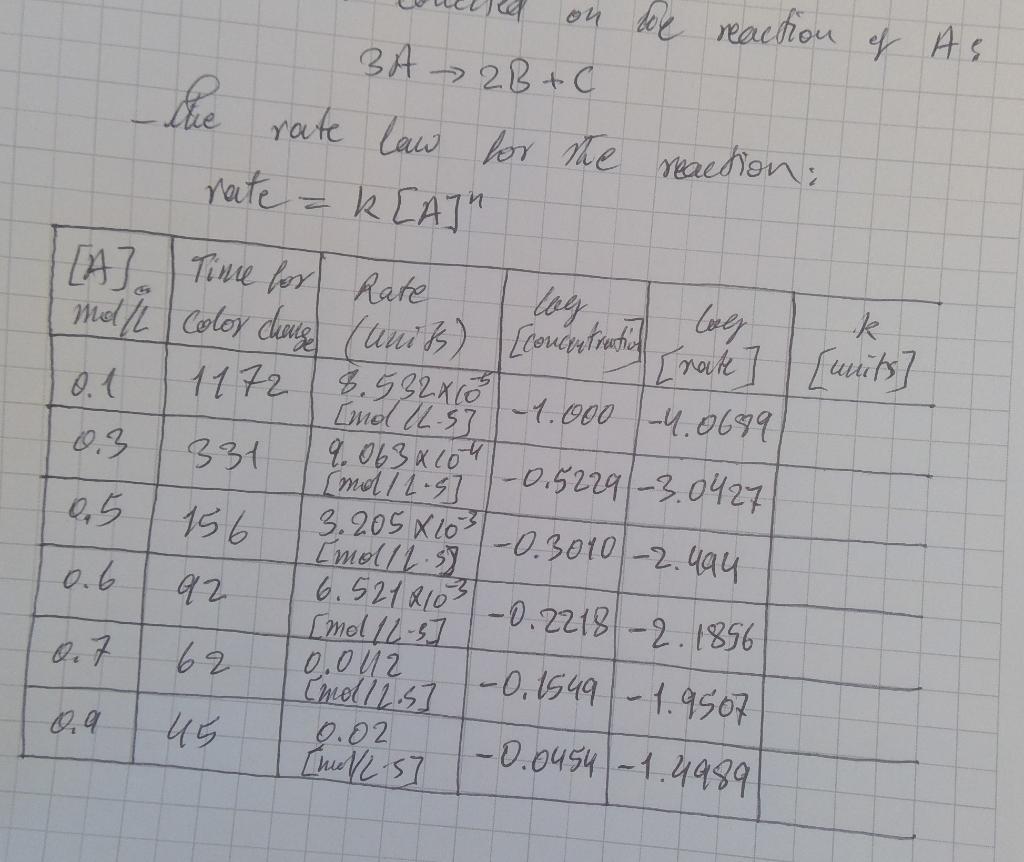 on the reaction of A:
3A → 2B + C
- the rate law for the reaction:
rate = k [A]ⁿ
[A]₀ mol/L | Time for color change | Rate (units) | log [concentration] | log [rate] | k [units]
0.1 | 1172 | 8.532x10⁻⁵ [mol/L.s] | -1.000 | -4.0689
0.3 | 331 | 9.063x10⁻⁴ [mol/L.s] | -0.5229 | -3.0427
0.5 | 156 | 3.205x10⁻³ [mol/L.s] | -0.3010 | -2.494
0.6 | 92 | 6.521x10⁻³ [mol/L-s] | -0.2218 | -2.1856
0.7 | 62 | 0.0112 [mol/L.s] | -0.1549 | -1.9507
0.9 | 45 | 0.02 [mol/L-s] | -0.0454 | -1.4989